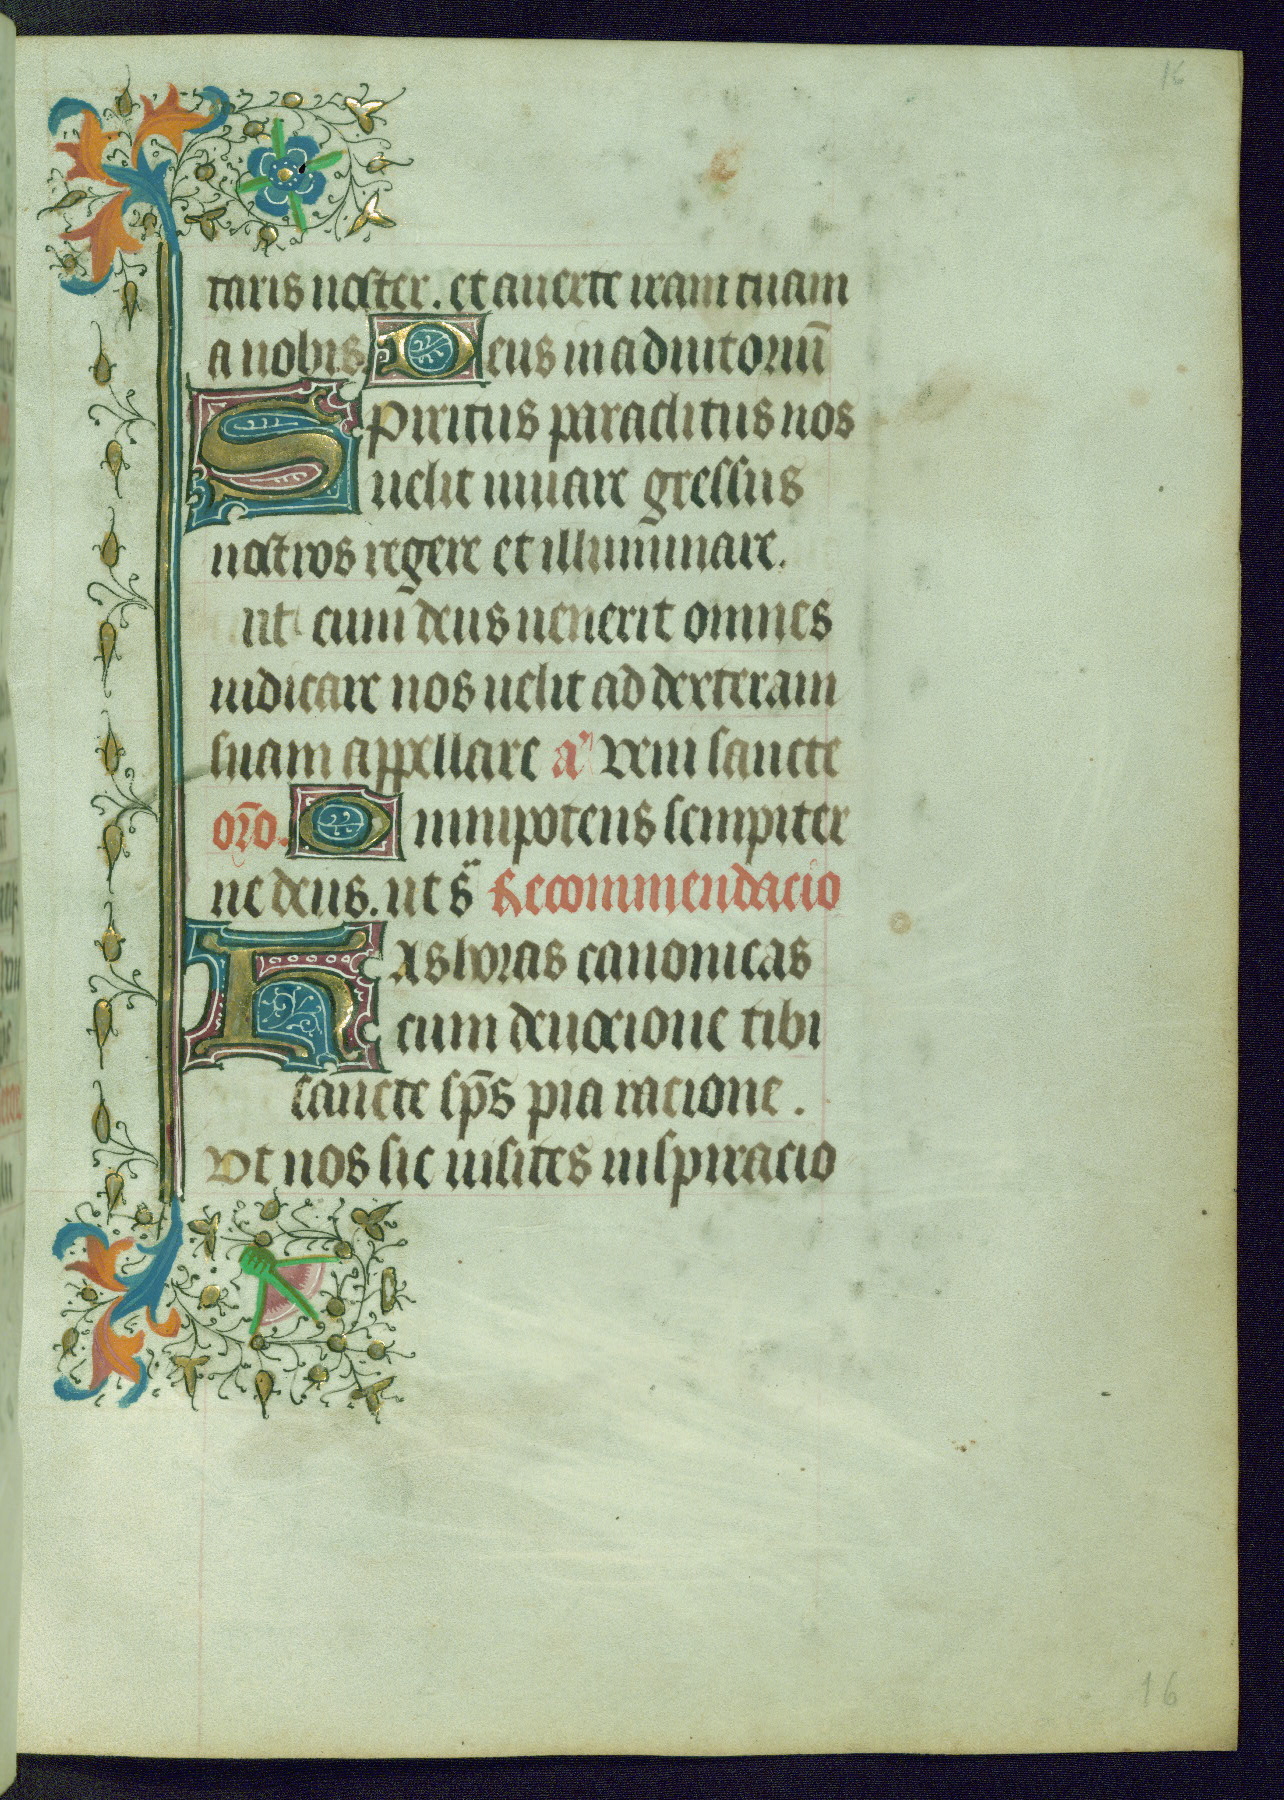 16
taris noster. et auerte iram tuam
a nobis. Deus in adiutoriu̅
Spiritus paraclitus nos
uelit iuuare gressus
nostros regere et illuminare.
ut cum deus uenerit omnes
iudicare nos uelit ad dexteram
suam appellare a' Veni sancte
or̅o. Omnipotens sempiter
ne deus. ut s̈ Recommendacio
Has horas canonicas
cum deuocione tibi
sancte sp̅s pia racione.
Vt nos sic uisites inspiracio
16